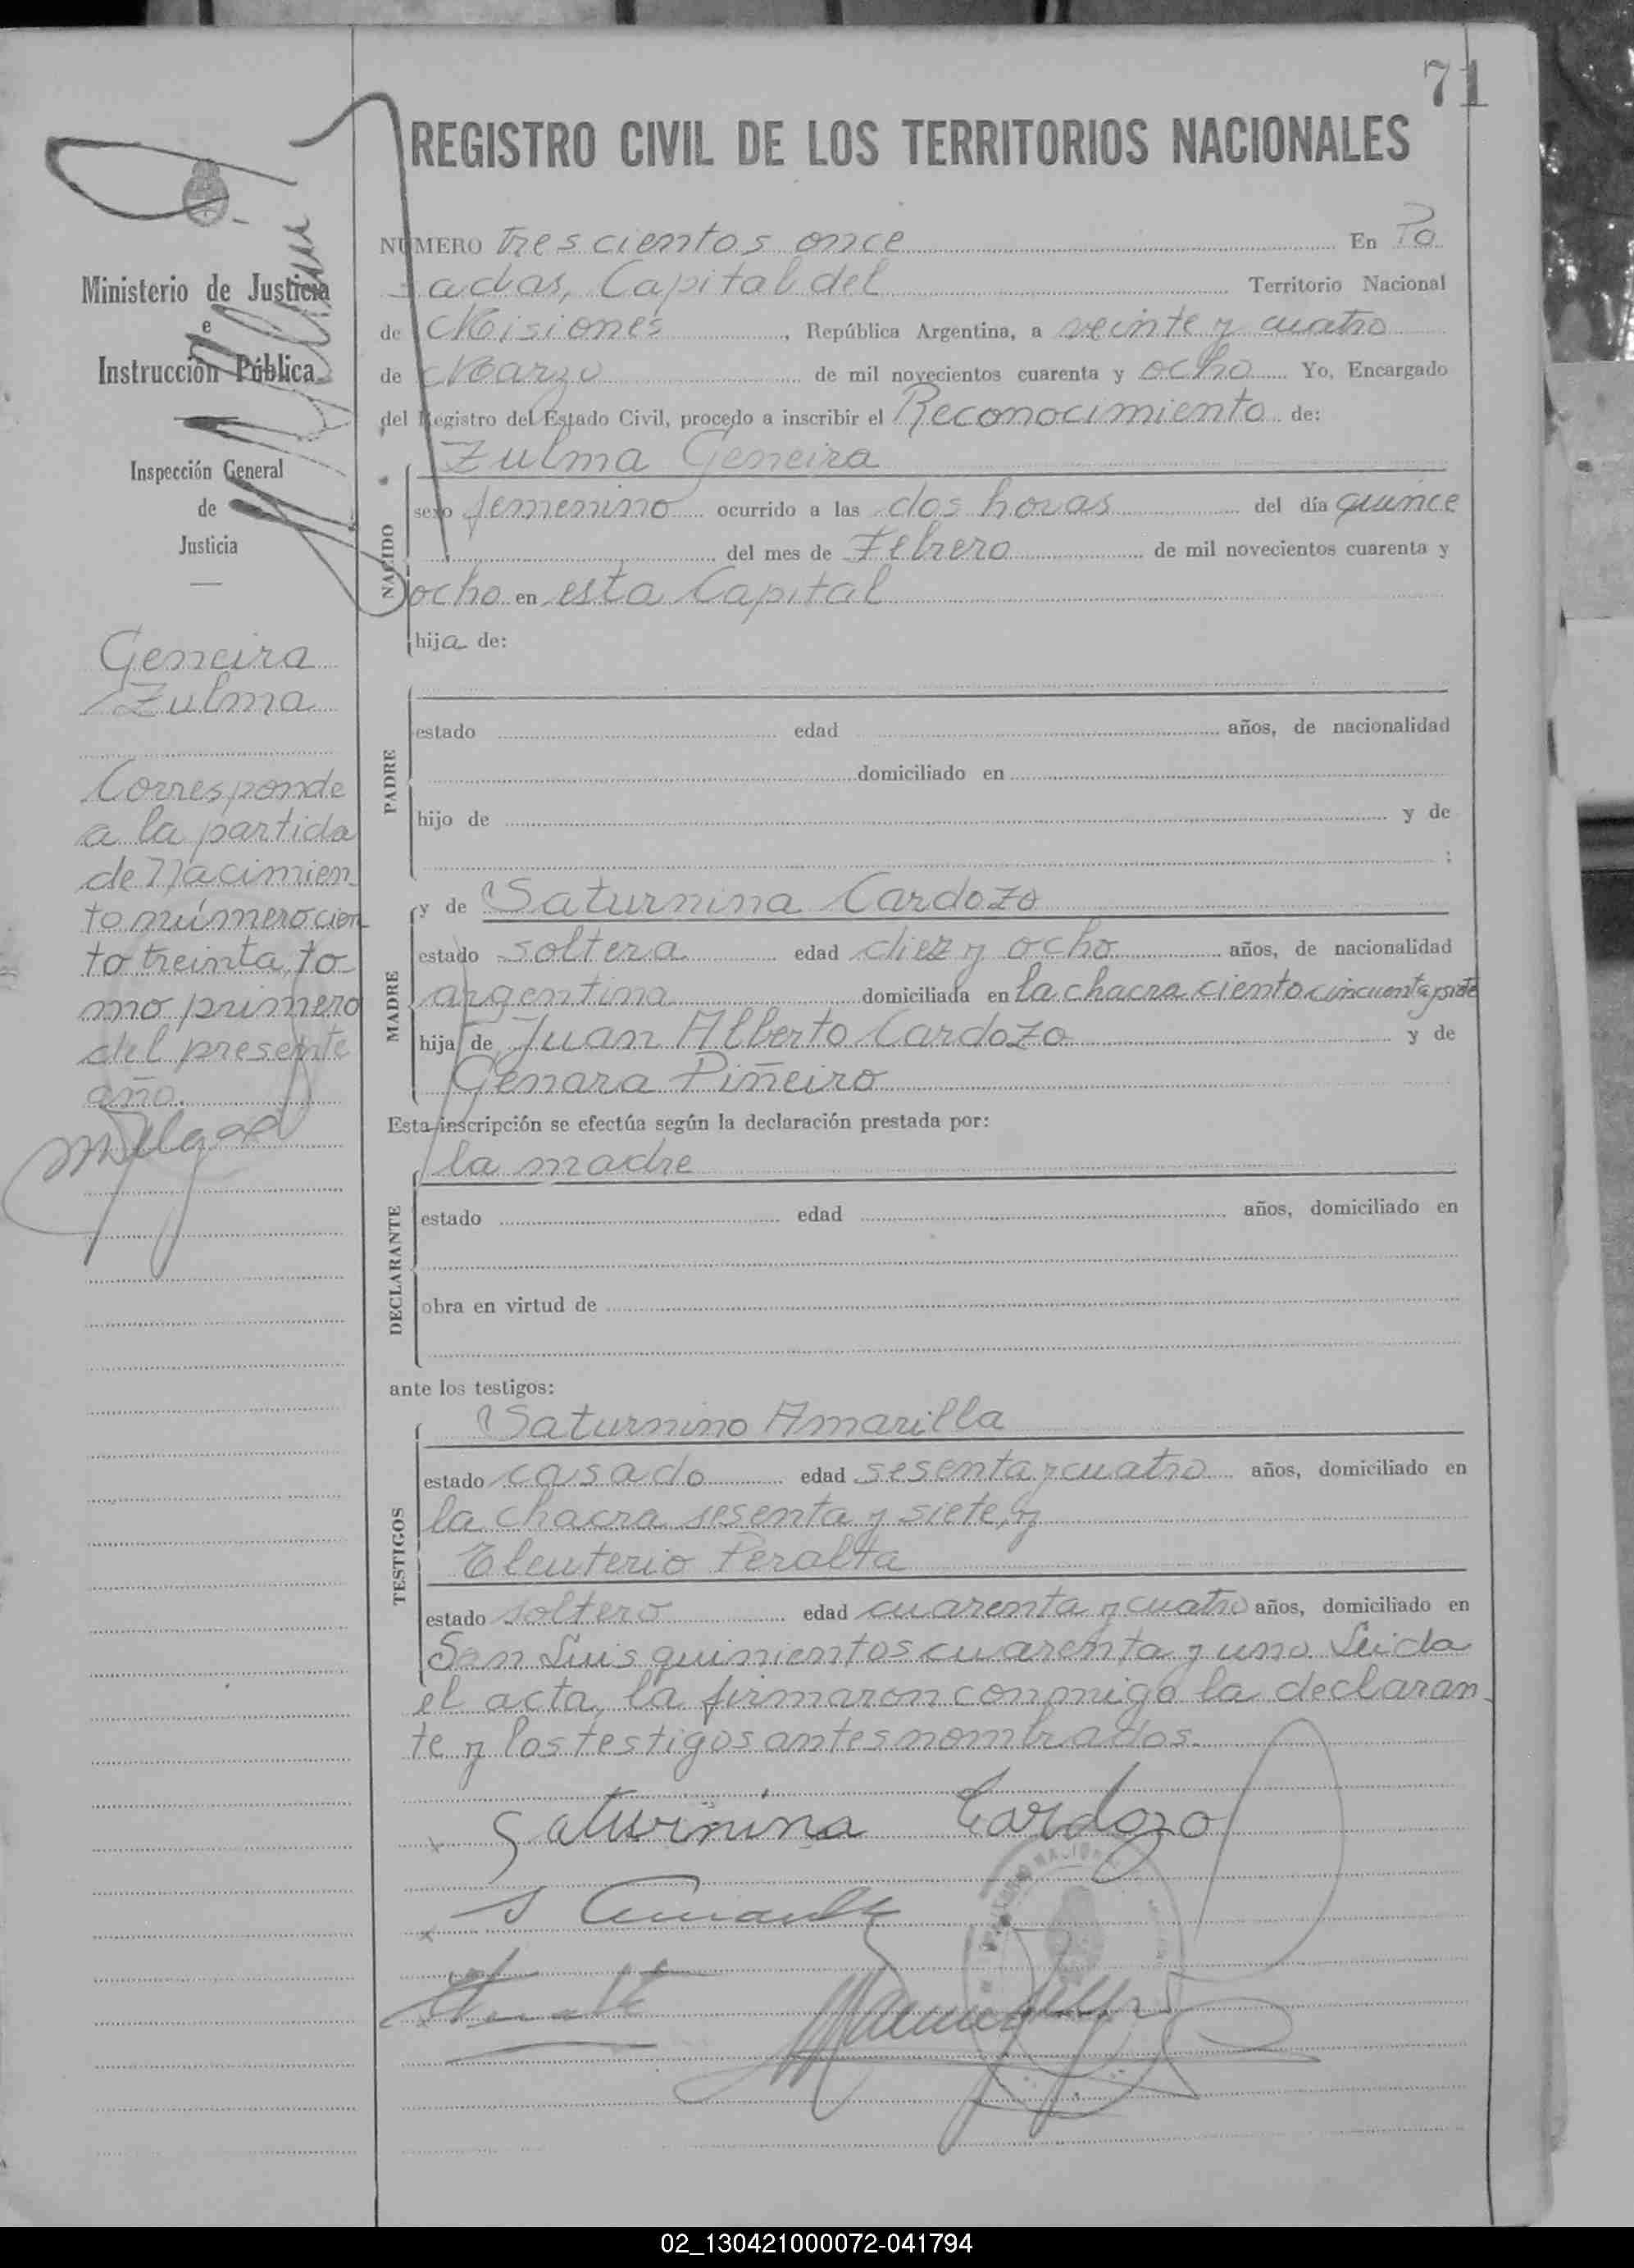 71
REGISTRO CIVIL DE LOS TERRITORIOS NACIONALES
Ministerio de Justicia
e
Instrucción Pública
Inspección General
de
Justicia
Geneira
Zulma
Corresponde
a la partida
de Nacimien
to número cien
to treinta, to
mo primero
del presente
año.
NÚMERO trescientos once En Po
sadas, Capital del Territorio Nacional
de Misiones, República Argentina, a veinte y cuatro
de Marzo de mil novecientos cuarenta y ocho Yo, Encargado
del Registro del Estado Civil, procedo a inscribir el Reconocimiento de:
NACIDO
Zulma Geneira
sexo femenino ocurrido a las dos horas del día quince
del mes de Febrero de mil novecientos cuarenta y
ocho en esta Capital
hija de:
PADRE
estado edad años, de nacionalidad
domiciliado en
hijo de y de
;
MADRE
y de Saturnina Cardozo
estado soltera edad diez y ocho años, de nacionalidad
argentina domiciliada en la chacra ciento cincuenta y siete
hija de Juan Alberto Cardozo y de
Genara Piñeiro
Esta inscripción se efectúa según la declaración prestada por:
DECLARANTE
la madre
estado edad años, domiciliado en
obra en virtud de
ante los testigos:
TESTIGOS
Saturnino Amarilla
estado casado edad sesenta y cuatro años, domiciliado en
la chacra sesenta y siete, y
Eleuterio Peralta
estado soltero edad cuarenta y cuatro años, domiciliado en
San Luis quinientos cuarenta y uno. Leida
el acta, la firmaron conmigo la declaran
te y los testigos antes nombrados.
Saturnina Cardozo
02_130421000072-041794